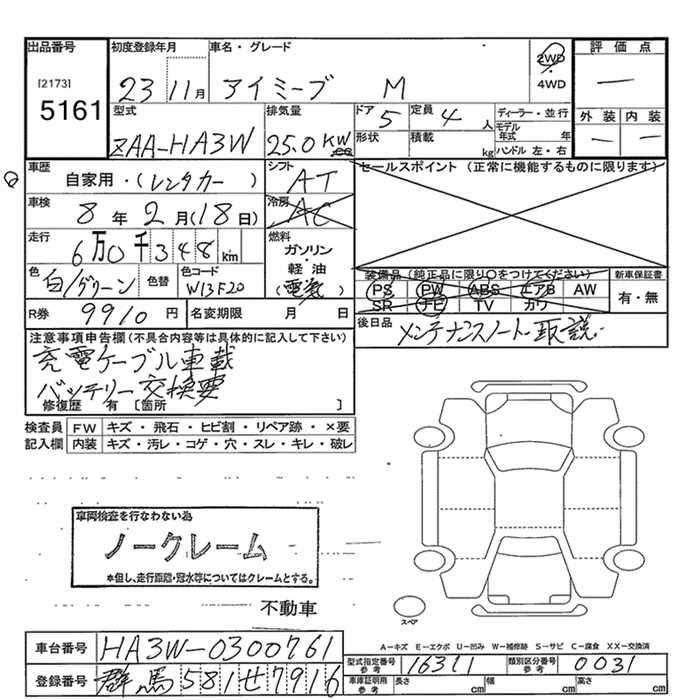 出品番号
[2173]
5161
初度登録年月
23 11月
車名・グレード
アイミーブ M
2WD
4WD
評価点
―
外装 内装
― ―
型式
ZAA-HA3W
排気量
25.0 KW
cc
ドア 5
形状
定員 4 人
積載 kg
ディーラー・並行
モデル年式 年
ハンドル 左・右
車歴
自家用・(レンタカー)
シフト
AT
セールスポイント (正常に機能するものに限ります)
車検
8年 2月(18日)
冷房
AC
走行
6万0千348km
燃料
ガソリン
・
軽・油
(電気)
色
白/グリーン
色替
色コード
W13F20
装備品(純正品に限り○をつけてください)
PS PW ABS エアB AW
SR ナビ TV カワ
新車保証書
有・無
R券 9910円
名変期限 月 日
後日品
メンテナンスノート・取説・
注意事項申告欄(不具合内容等は具体的に記入して下さい)
充電ケーブル車載
バッテリー交換要
修復歴 有 [箇所 ]
検査員記入欄
FW キズ・飛石・ヒビ割・リペア跡・×要
内装 キズ・汚レ・コゲ・穴・スレ・キレ・破レ
車両検査を行なわない為
ノークレーム
*但し、走行距離・冠水等についてはクレームとする。
不動車
スペア
A-キズ E-エクボ U-凹み W-補修跡 S-サビ C-腐食 XX-交換済
車台番号 HA3W-0300761
型式指定番号 参考 16311
類別区分番号 参考 0031
登録番号 群馬581せ7916
車庫証明用 参考 長さ cm 幅 cm 高さ cm